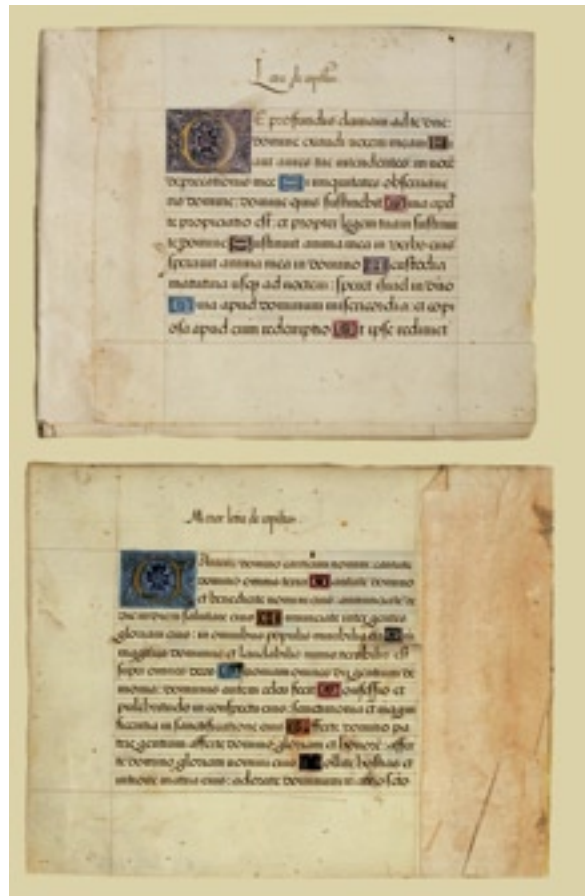 Letra de capitulos
DE profundis clamavi ad te dñe:
domine exaudi vocem meam F i
ant aures tue intendentes in vocē
deprecationis mee S i iniquitates observave
ris domine: domine quis sustinebit Q uia apd
te propiciatio est: et propter legem tuam sustinui
te domine S ustinuit anima mea in verbo eius
speravit anima mea in domino A custodia
matutina usqȝ ad noctem: speret israel in dño
Q uia apud dominum misericordia: et copi
osa apud eum redemptio E t ipse redimet
Menor letra de capitulos
CAntate domino canticum novum: cantate
domino omnis terra C antate domino
et benedicite nomini eius: annunciate de
die in diem salutare eius A nnunciate inter gentes
gloriam eius: in omnibus populis mirabilia eius Q m̄
magnus dominus et laudabilis nimis terribilis est
super omnes deos Q uoniam omnes dij gentium de
monia: dominus autem celos fecit C onfessio et
pulchritudo in conspectu eius: sanctimonia et magni
ficentia in sanctificatione eius A fferte domino pa
trie gentium afferte domino gloriam et honorē: affer
te domino gloriam nomini eius T ollite hostias et
introite in atria eius: adorate dominum in atrio scō